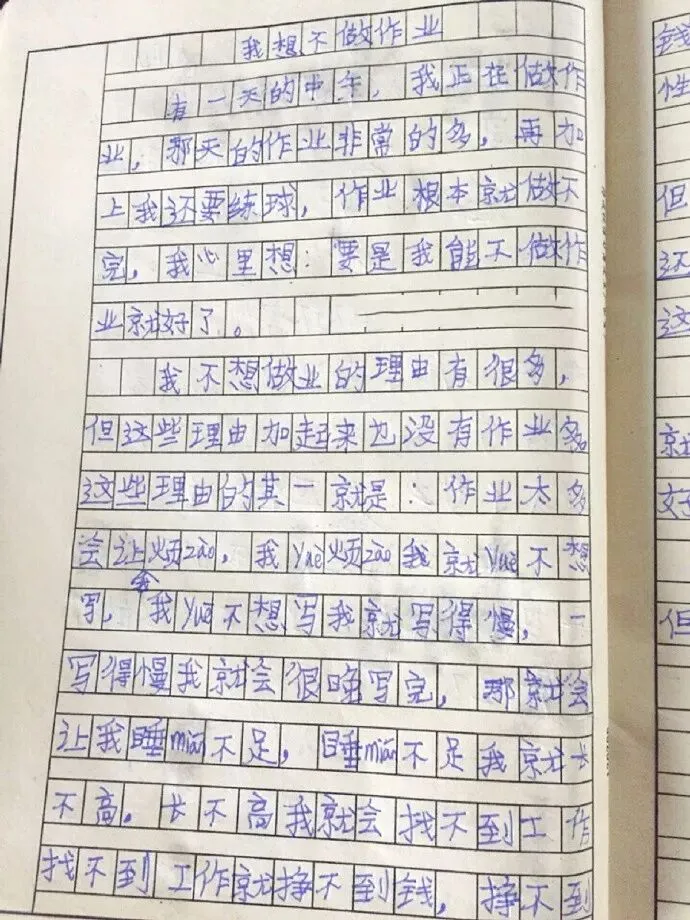 我想不做作业
有一天的中午，我正在做作
业，那天的作业非常的多，再加
上我还要练球，作业根本就做不
完，我心里想：要是我能不做作
业就好了。
我不想做业的理由有很多，
但这些理由加起来也没有作业多
这些理由的其一就是：作业太多
会让烦zào，我yuè烦zào我就yuè不想
写，我yuè不想写我就会写得慢，一
写得慢我就会很晚写完，那就会
让我睡mián不足，睡mián不足我就长
不高。长不高我就会找不到工作
找不到工作就挣不到钱，挣不到
钱
性
但
还
这
就
好
但